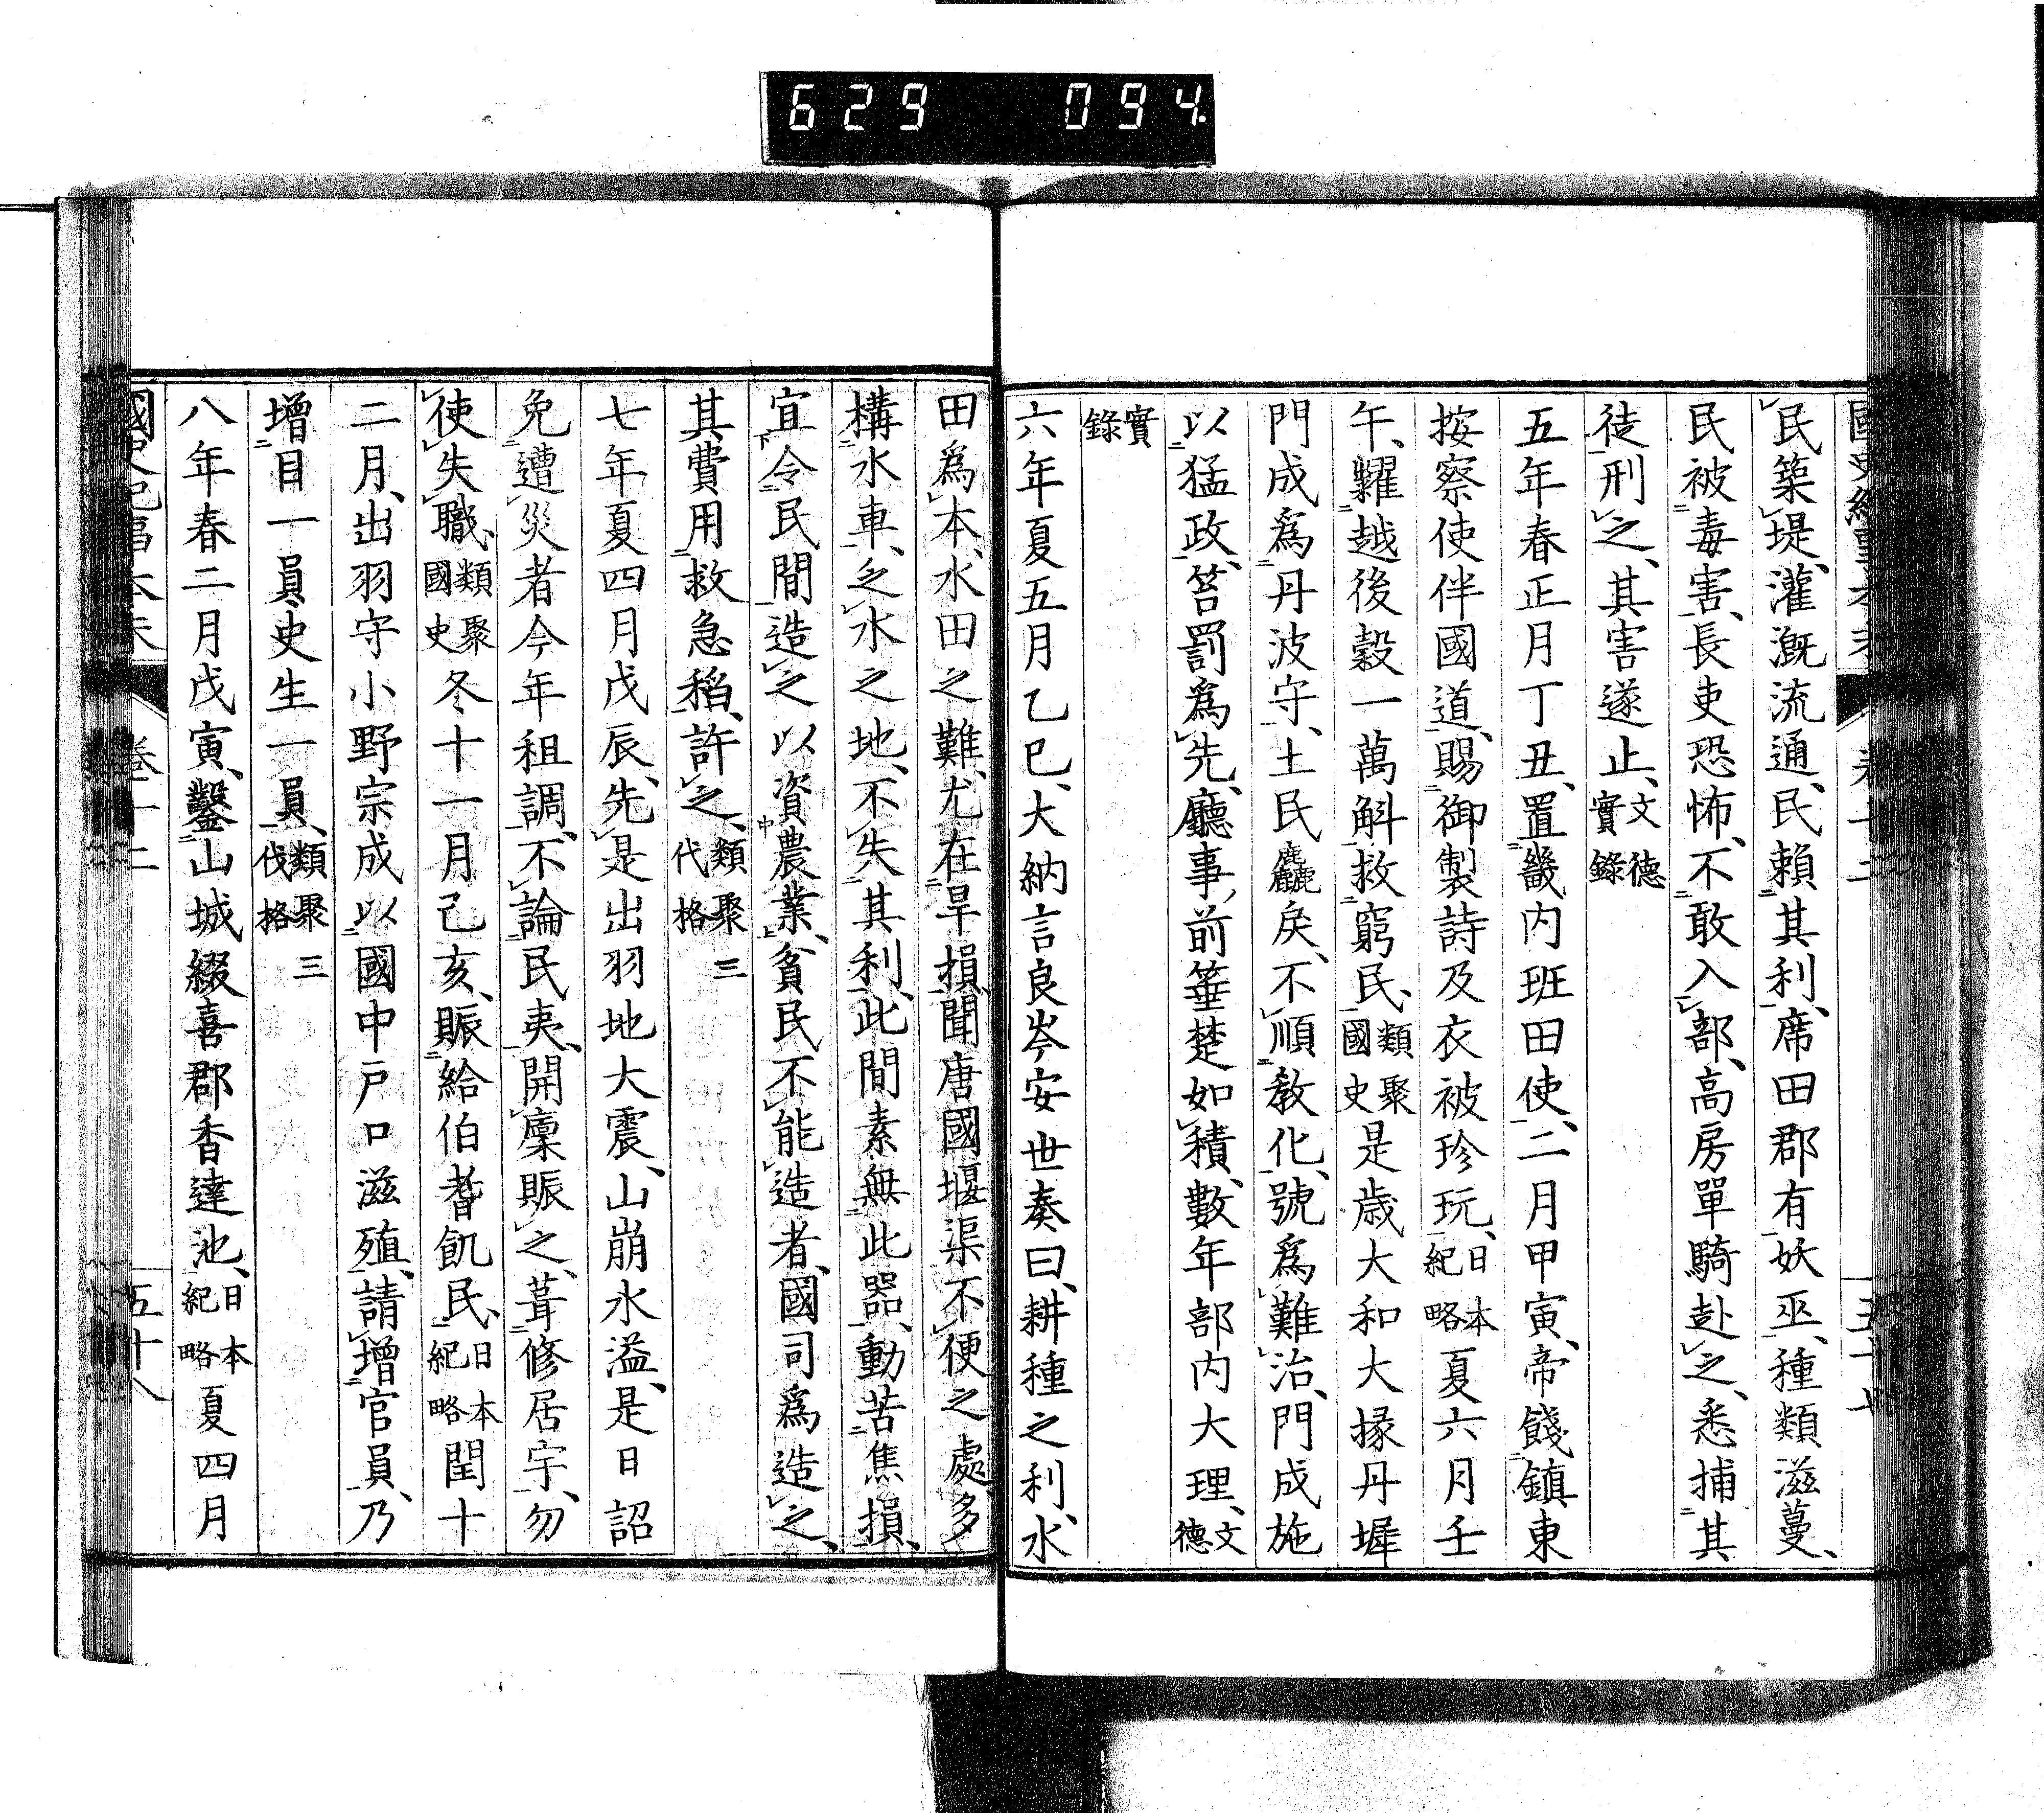 629 094
民築堤、灌漑流通、民頼其利、席田郡有妖巫、種類滋蔓、
民被毒害、長吏恐怖、不敢入部、高房單騎赴之、悉捕其
徒刑之、其害遂止、文德實錄
五年春正月丁丑、置畿内班田使、二月甲寅、帝餞鎮東
按察使伴國道、賜御製詩及衣被珍玩、日本紀略夏六月壬
午、糶越後穀一萬斛救窮民、類聚國史是歲大和大掾丹墀
門成爲丹波守、土民麤戾、不順敎化、號爲難治、門成施
以猛政、笞罰爲先、廳事前箠楚如積、數年部内大理、文德
實錄
六年夏五月乙巳、大納言良岑安世奏曰、耕種之利、水
田爲本、水田之難、尤在旱損、聞唐國堰渠不便之處、多
構水車、乏水之地、不失其利、此間素無此器、動苦焦損、
宜令民間造之以資農業、貧民不能造者、國司爲造之、
其費用救急稻、許之、類聚三代格
七年夏四月戊辰、先是出羽地大震、山崩水溢、是日詔
免遭災者今年租調、不論民夷、開廩賑之、葺修居宇、勿
使失職、類聚國史冬十一月己亥、賑給伯耆飢民、日本紀略閏十
二月、出羽守小野宗成以國中戸口滋殖、請增官員、乃
增目一員史生一員、類聚三代格
八年春二月戊寅、鑿山城綴喜郡香達池、日本紀略夏四月
卷十二
五十八